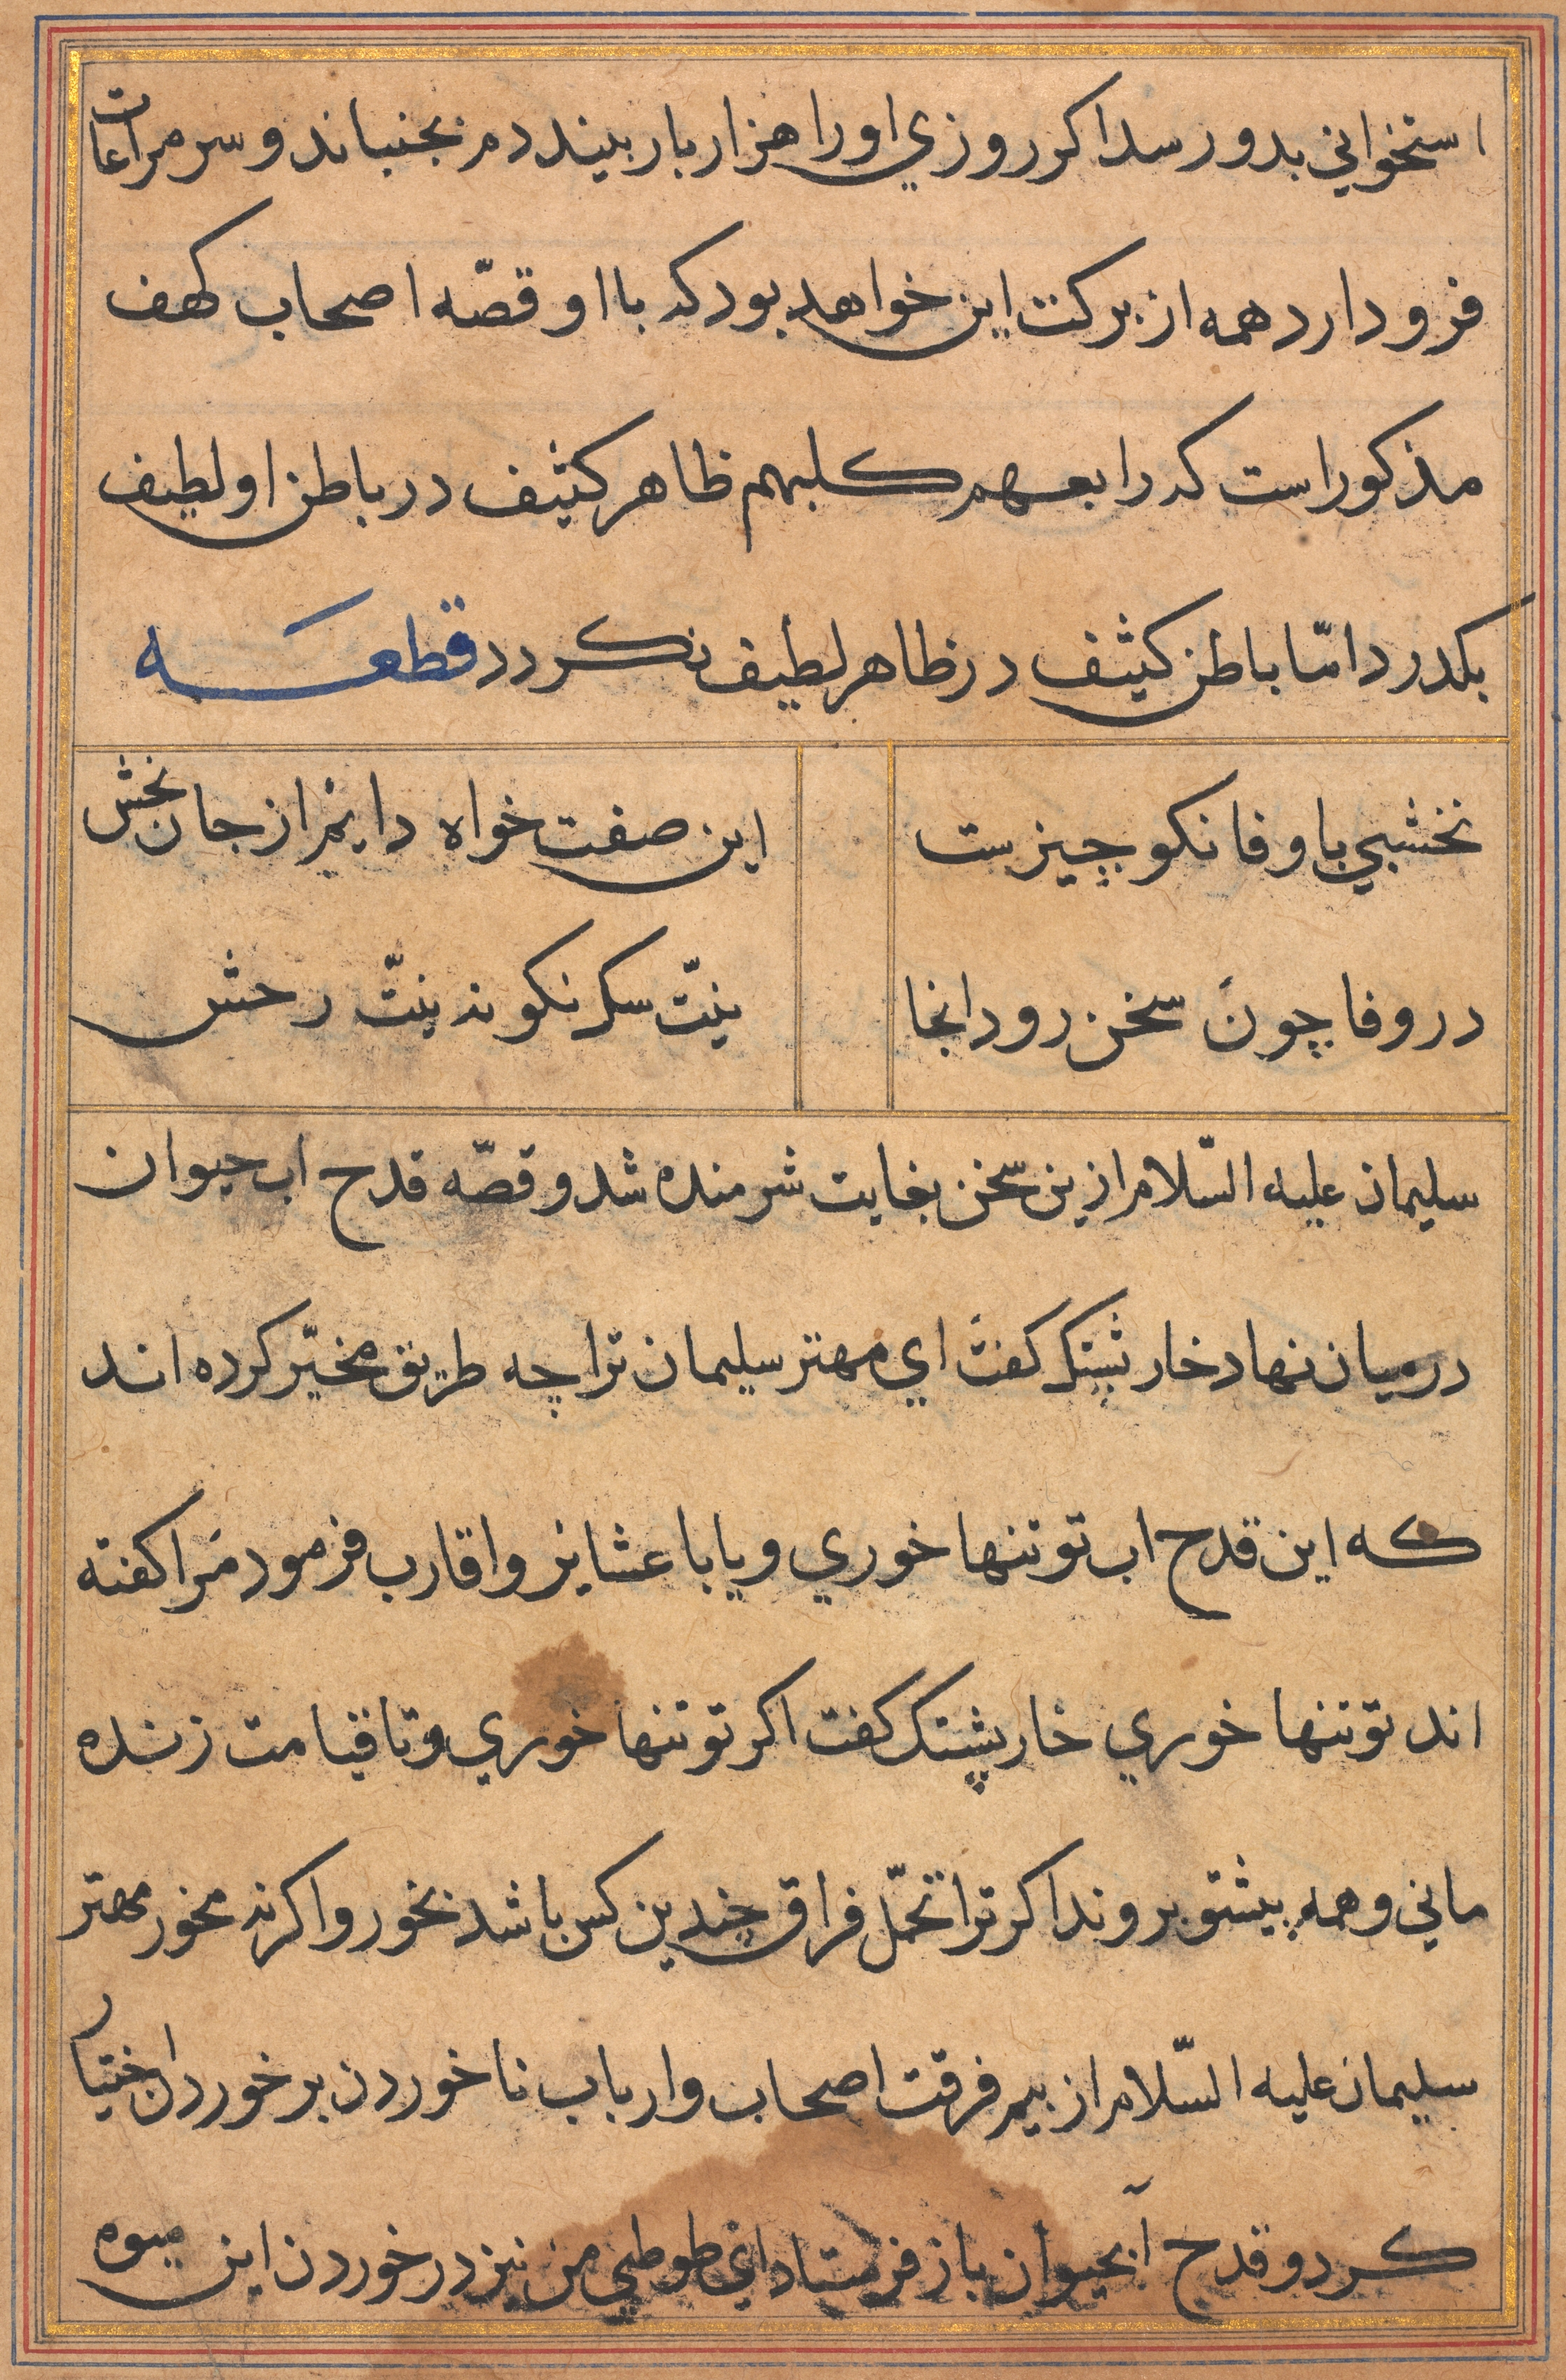 استخواني بدو رسد اكر روزي او را هزار بار بيند دم بجنباند و سر مراعات
فرو دارد همه از بركت اين خواهد بود كه با او قصّه اصحاب كهف
مذكور است كه رابعهم كلبهم ظاهر كثيف در باطن او لطيف
بكدرد امّا باطن كثيف در ظاهر لطيف نكردد قطعه
نخشبي با وفا نكو چيزيست
اين صفت خواه دايم از جان بخش
در وفا چون سخن رود انجا
نيّت سك نكو نه نيّت رخش
سليمان عليه السّلام ازين سخن بغايت شرمنده شد و قصّه قدح اب حيوان
درميان نهاد خارپشتك كفت اي مهتر سليمان ترا چه طريق مخيّر كرده اند
كه اين قدح اب تو تنها خوري و يا با عشاير و اقارب فرمود مرا كفته
اند تو تنها خوري خارپشتك كفت اكر تو تنها خوري و تا قيامت زنده
ماني و همه پيشتو بروند اكر ترا تحمّل فراق چندين كس باشد بخور و اكر نه مخور مهتر
سليمان عليه السّلام از بيم فرقت اصحاب و ارباب نا خوردن بر خوردن اختيار
كرد و قدح آبحيوان باز فرستاد اي طوطي من نيز در خوردن اين ميوه